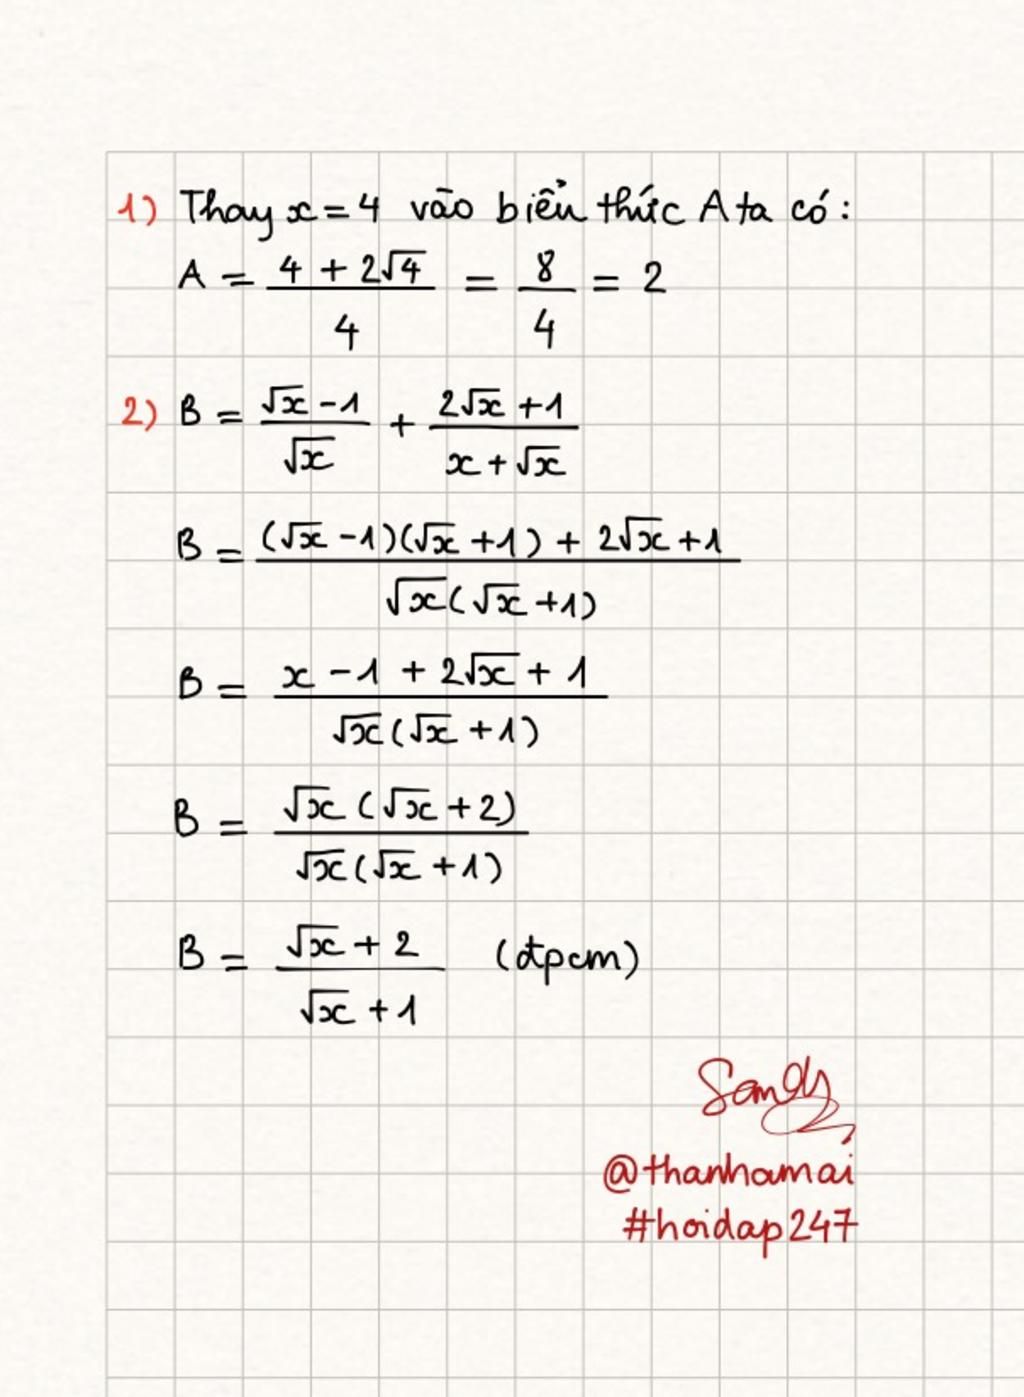 1) Thay x = 4 vào biểu thức A ta có:
A = (4 + 2√4)/4 = 8/4 = 2
2) B = (√x - 1)/√x + (2√x + 1)/(x + √x)
B = ((√x - 1)(√x + 1) + 2√x + 1)/(√x(√x + 1))
B = (x - 1 + 2√x + 1)/(√x(√x + 1))
B = (√x(√x + 2))/(√x(√x + 1))
B = (√x + 2)/(√x + 1) (đpcm)
Sandy
@thanhamai
#hoidap247